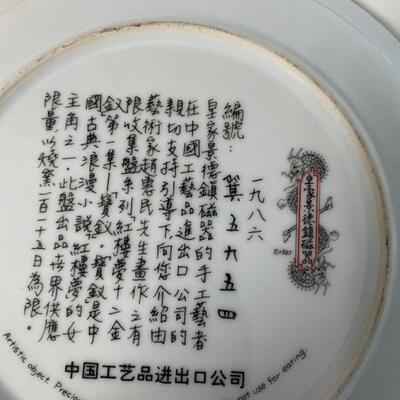 皇家景德鎮磁器
©1987
一九八六
編號：翼五
五四
皇家景德鎮磁器的手工藝者
在中國工藝品進出口公司的
親切支持引導下向你介紹由
藝術家趙惠民先生畫作之有
限收集盤系列「紅樓夢十二金
釵」第一集—「寶釵」。寶釵是中
國古典浪漫小說「紅樓夢」的女
主角之一。此盤出品在世界供應
限量以燒窯一百十五日為限。
中国工艺品进出口公司
Artistic object. not use for eating.